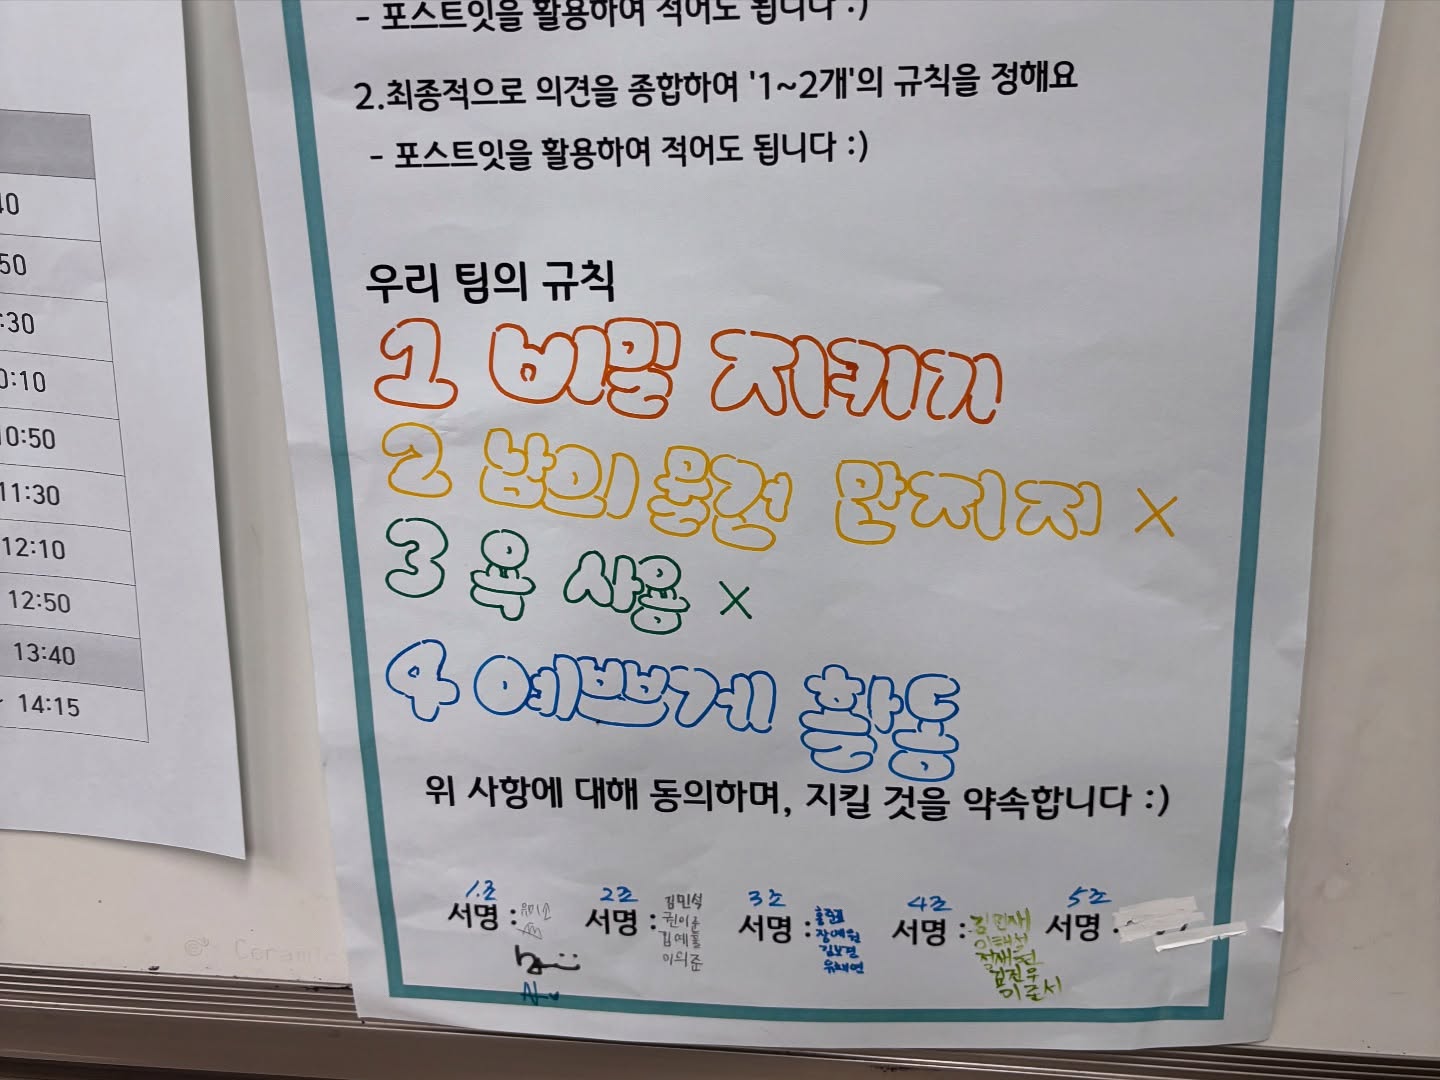 - 포스트잇을 활용하여 적어도 됩니다 :)
2.최종적으로 의견을 종합하여 '1~2개'의 규칙을 정해요
- 포스트잇을 활용하여 적어도 됩니다 :)
우리 팀의 규칙
1 비밀 지키기
2 남의 물건 만지지 ×
3 욕 사용 ×
4 예쁘게 활동
위 사항에 대해 동의하며, 지킬 것을 약속합니다 :)
1조 2조 3조 4조 5조
서명 : 서명 : 서명 : 서명 : 서명 :
유미소
김민석
권이준
김예훌
이희준
장예원
유채연
김민재
이태석
김진우
이준서
40
50
:30
0:10
10:50
11:30
12:10
12:50
13:40
14:15